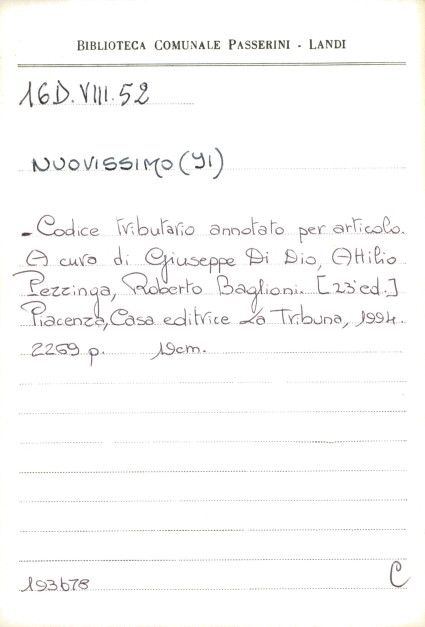 BIBLIOTECA COMUNALE PASSERINI - LANDI
16D.VIII.52
NUOVISSIMO (YI)
- Codice tributario annotato per articolo.
A cura di Giuseppe Di Dio, Attilio
Pezzinga, Roberto Baglioni. [23ªed.]
Piacenza, Casa editrice La Tribuna, 1994.
2269 p. 19cm.
193678
C